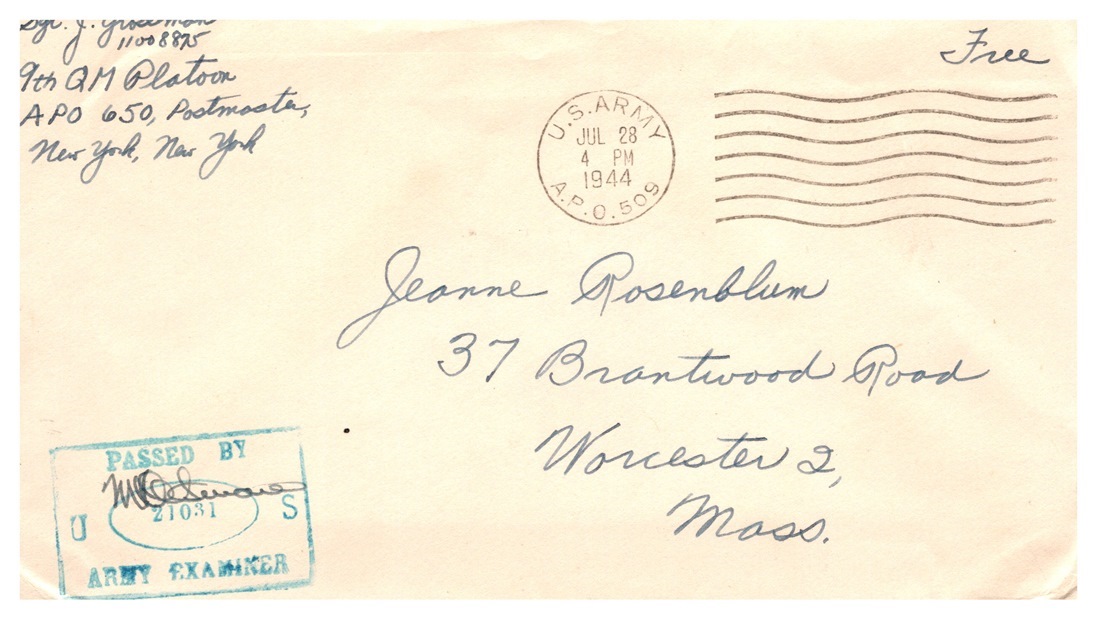 Sgt. J. Grossman
11008875
9th QM Platoon
APO 650, Postmaster,
New York, New York
Free
U.S. ARMY
JUL 28
4 PM
1944
A.P.O. 509
Jeanne Rosenblum
37 Brantwood Road
Worcester 2,
Mass.
PASSED BY
U 21031 S
ARMY EXAMINER